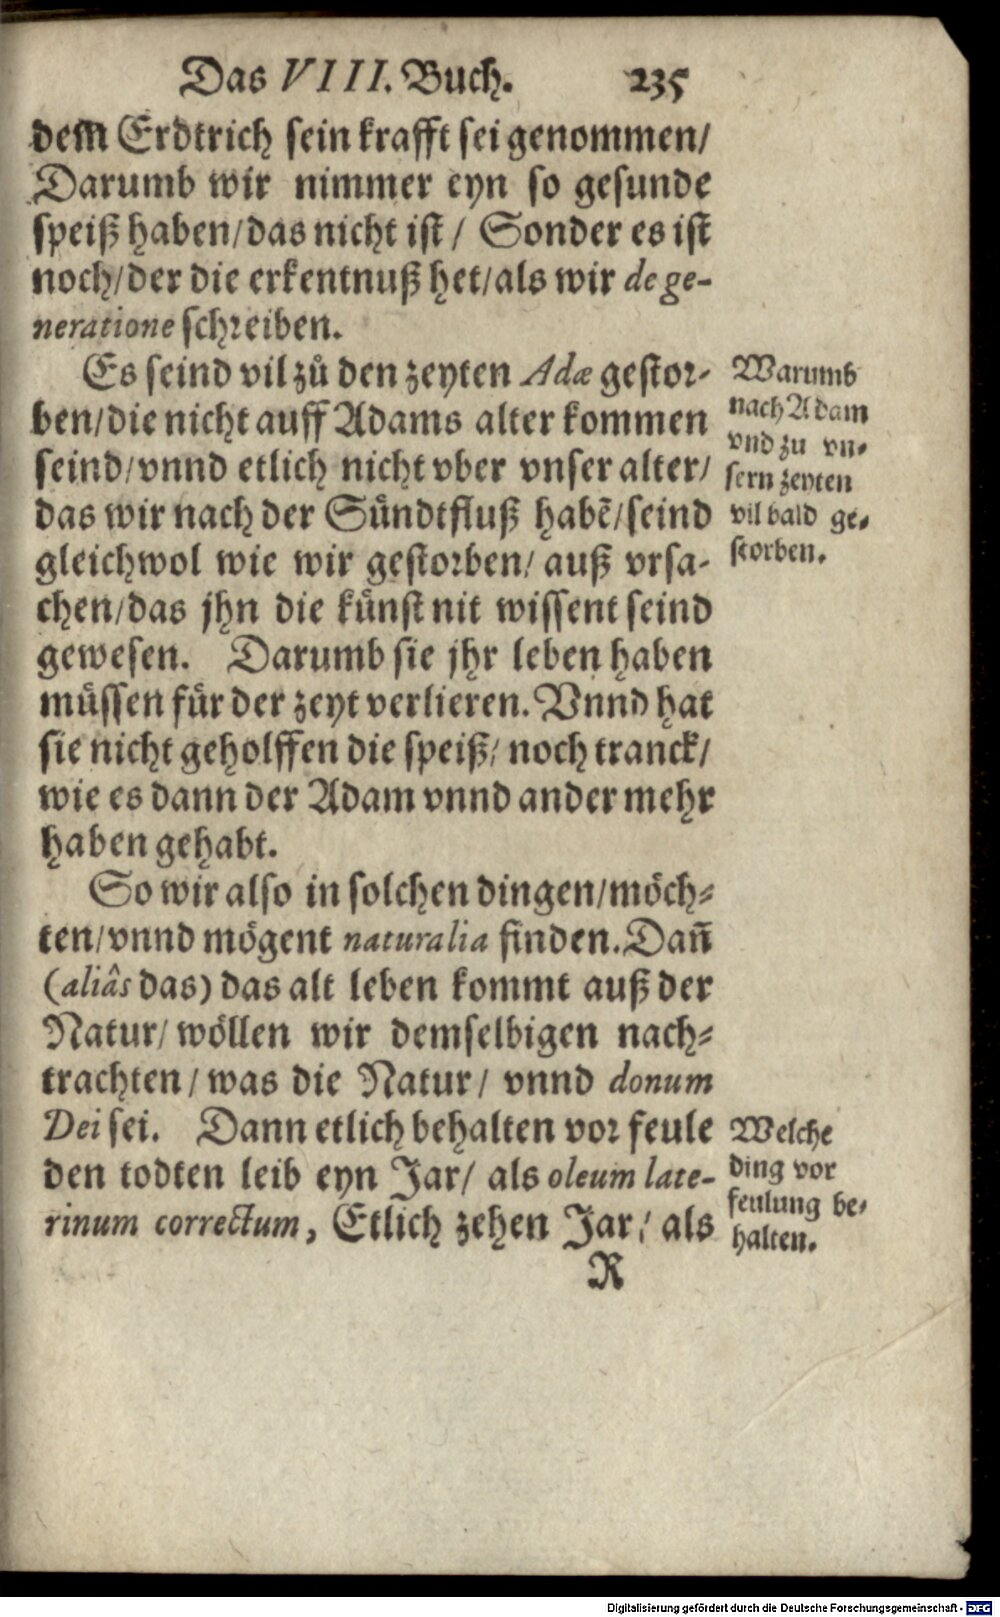 Das VIII. Buch. 235
dem Erdtrich sein krafft sei genommen/
Darumb wir nimmer eyn so gesunde
speiß haben/das nicht ist/ Sonder es ist
noch/der die erkentnuß het/als wir de ge-
neratione schreiben.
Es seind vil zů den zeyten Adæ gestor-
ben/die nicht auff Adams alter kommen
seind/vnnd etlich nicht vber vnser alter/
das wir nach der Sündtfluß habẽ/seind
gleichwol wie wir gestorben/ auß vrsa-
chen/das jhn die künst nit wissent seind
gewesen. Darumb sie jhr leben haben
müssen für der zeyt verlieren. Vnnd hat
sie nicht geholffen die speiß/ noch tranck/
wie es dann der Adam vnnd ander mehr
haben gehabt.
Warumb
nach Adam
vnd zu vn-
sern zeyten
vil bald ge-
storben.
So wir also in solchen dingen/möch-
ten/vnnd mögent naturalia finden. Dañ
(aliâs das) das alt leben kommt auß der
Natur/ wöllen wir demselbigen nach-
trachten/ was die Natur/ vnnd donum
Dei sei. Dann etlich behalten vor feule
den todten leib eyn Jar/ als oleum late-
rinum correctum, Etlich zehen Jar/ als
Welche
ding vor
feulung be-
halten.
R
Digitalisierung gefördert durch die Deutsche Forschungsgemeinschaft - DFG